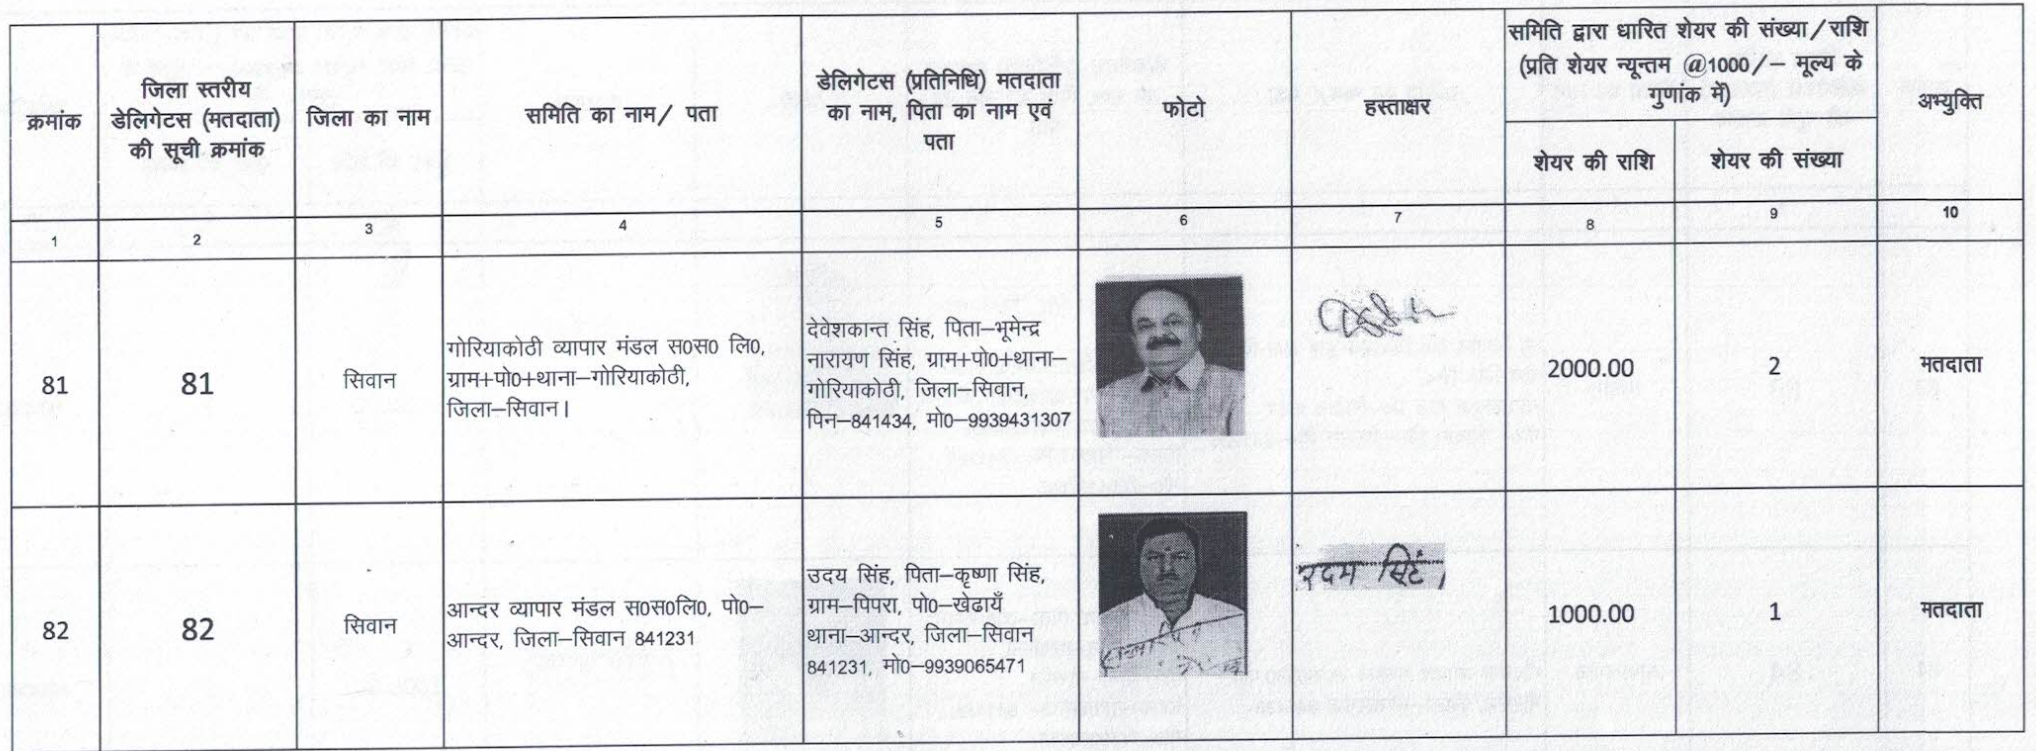 क्रमांक
जिला स्तरीय
डेलिगेटस (मतदाता)
की सूची क्रमांक
जिला का नाम
समिति का नाम/ पता
डेलिगेटस (प्रतिनिधि) मतदाता
का नाम, पिता का नाम एवं
पता
फोटो
हस्ताक्षर
समिति द्वारा धारित शेयर की संख्या/राशि
(प्रति शेयर न्यूनतम @1000/– मूल्य के
गुणांक में)
शेयर की राशि
शेयर की संख्या
अभ्युक्ति
1 2 3 4 5 6 7 8 9 10
81
81
सिवान
गोरियाकोठी व्यापार मंडल स०स० लि०,
ग्राम+पो०+थाना–गोरियाकोठी,
जिला–सिवान।
देवेशकान्त सिंह, पिता–भूमेन्द्र
नारायण सिंह, ग्राम+पो०+थाना–
गोरियाकोठी, जिला–सिवान,
पिन–841434, मो०–9939431307
2000.00
2
मतदाता
82
82
सिवान
आन्दर व्यापार मंडल स०स०लि०, पो०–
आन्दर, जिला–सिवान 841231
उदय सिंह, पिता–कृष्णा सिंह,
ग्राम–पिपरा, पो०–खेढायँ
थाना–आन्दर, जिला–सिवान
841231, मो०–9939065471
1000.00
1
मतदाता